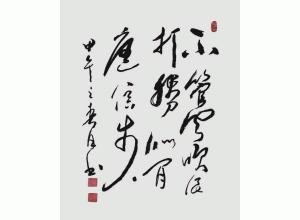 不管风吹浪
打胜似闲
庭信步
甲午之春月书